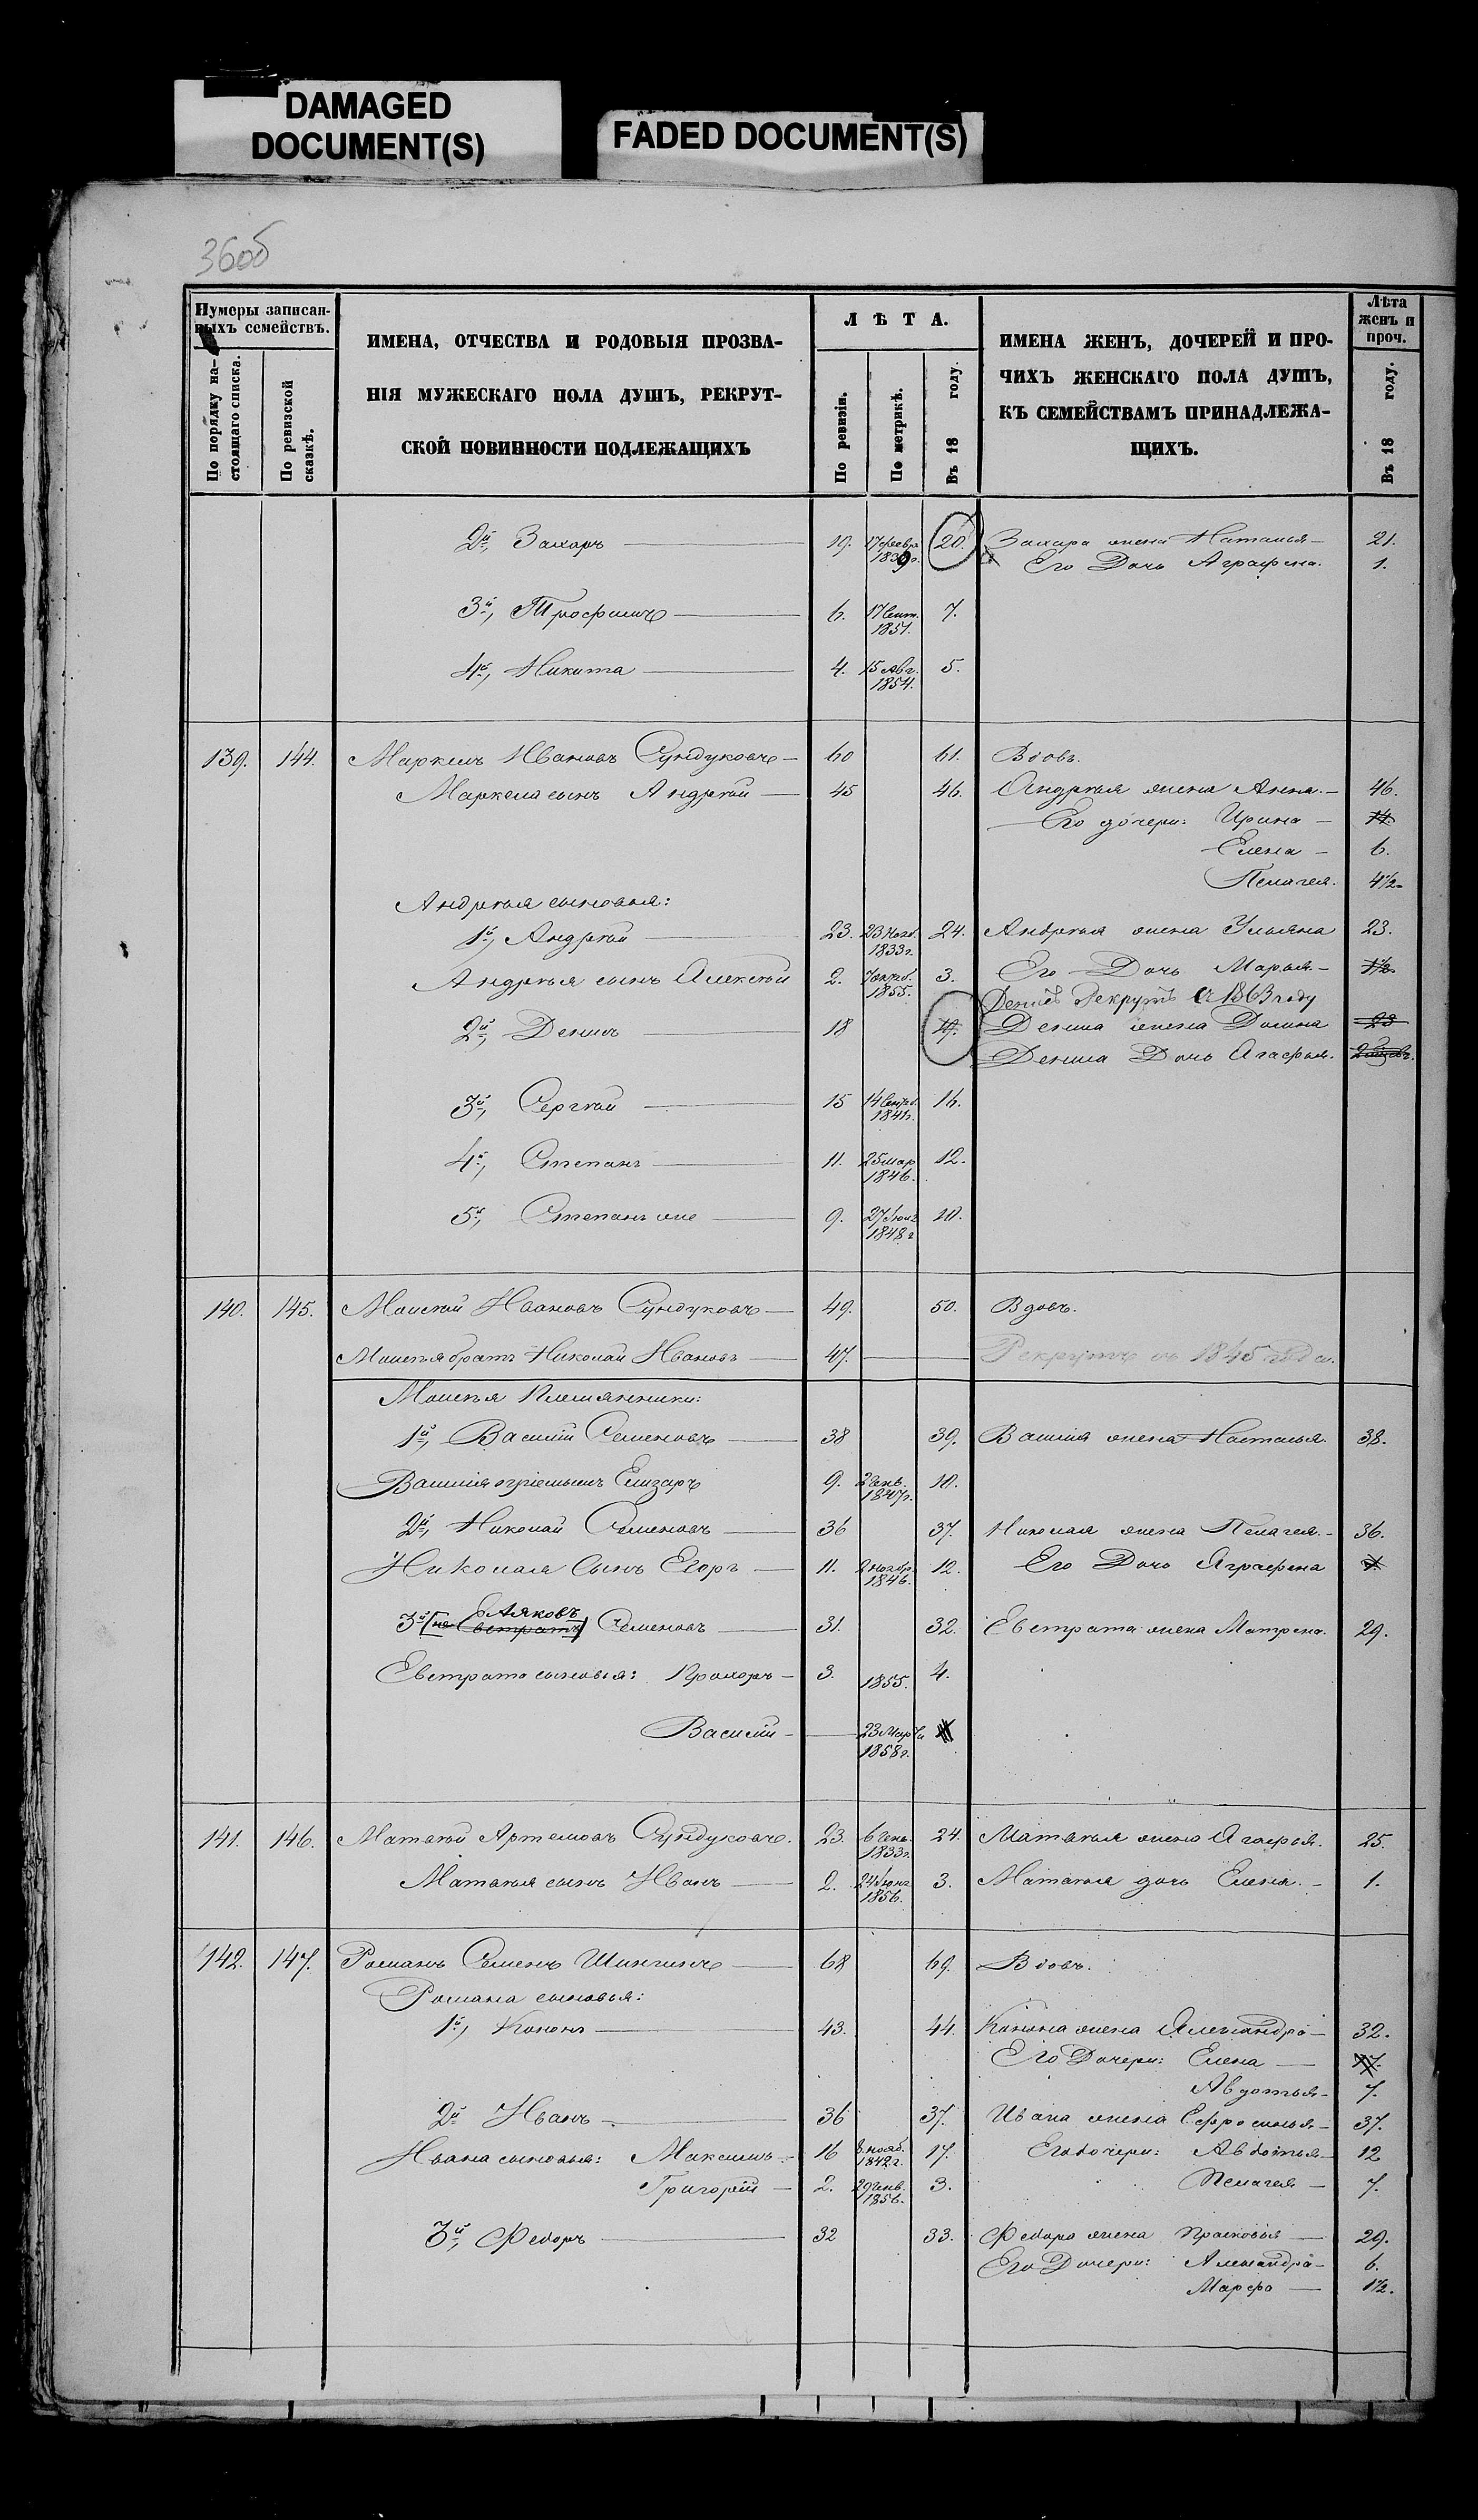 DAMAGED
DOCUMENT(S)
FADED DOCUMENT(S)
36об
Нумеры записан-
ныхъ семействъ.
По порядку на-
стоящаго списка.
По ревизской
сказкѣ.
ИМЕНА, ОТЧЕСТВА И РОДОВЫЯ ПРОЗВА-
НІЯ МУЖЕСКАГО ПОЛА ДУШЪ, РЕКРУТ-
СКОЙ ПОВИННОСТИ ПОДЛЕЖАЩИХЪ
ЛѢТА.
По ревизіи.
По метрикѣ.
Въ 18 году.
ИМЕНА ЖЕНЪ, ДОЧЕРЕЙ И ПРО-
ЧИХЪ ЖЕНСКАГО ПОЛА ДУШЪ,
КЪ СЕМЕЙСТВАМЪ ПРИНАДЛЕЖА-
ЩИХЪ.
Лѣта
женъ и
проч.
Въ 18 году.
2й, Захаръ 19. 17 февр. 1839 г. 20. Захара жена Наталья 21.
Его Дочь Аграфена. 1.
3й, Трофимъ 6. 17 Сент. 1851. 7.
4й, Никита 4. 15 Авг. 1854. 5.
139. 144. Маркелъ Ивановъ Сундуковъ 60 61. Вдовъ.
Маркела сынъ Андрѣй 45 46. Андрѣя жена Анна. 46.
Его дочери: Ирина 14.
Елена 6.
Пелагея. 4½.
Андрѣя сыновья:
1й, Андрѣй 23. 23 Нояб. 1833 г. 24. Андрѣя жена Ульяна 23.
Андрѣя сынъ Алексѣй 2. 7 октяб. 1855. 3. Его Дочь Марья. 1½.
Денисъ Рекрутъ съ 1863 году
2й, Денисъ 18 19. Дениса жена Домна 23
Дениса Дочь Агафья.
3й, Сергѣй 15 14 Сентяб. 1841 г. 16.
4й, Степанъ 11. 25 мар 1846. 12.
5й, Степанъ же 9. 27 Июл 1848 г 10.
140. 145. Моисѣй Ивановъ Сундуковъ 49. 50. Вдовъ.
Моисѣя братъ Николай Ивановъ 47. Рекрутъ съ 1845 года.
Моисѣя Племянники:
1й, Василій Семеновъ 38 39. Василія жена Наталья. 38.
Василія пріемышъ Елизаръ 9. 2 Генв. 1847 г. 10.
2й, Николай Семеновъ 36 37. Николая жена Пелагея. 36.
Николая Сынъ Егоръ 11. 2 ноябр. 1846. 12. Его Дочь Аграфена
3й [не Евстратъ] Аяковъ Семеновъ 31. 32. Евстрата жена Матрена. 29.
Евстрата сыновья: Прохоръ 3. 1855. 4.
Василій 23 Марта 1858 г.
141. 146. Матвѣй Артемовъ Сундуковъ. 23. 6 Генв. 1833 г. 24. Матвѣя жена Агафья. 25.
Матвѣя сынъ Иванъ 2. 24 Июн 1856. 3. Матвѣя дочь Елена. 1.
142. 147. Романъ Семенъ Шингинъ 68 69. Вдовъ.
Романа сыновья:
1й, Кононъ 43. 44. Конона жена Александра 32.
Его Дочери: Елена 17.
Авдотья 7.
2й Иванъ 36 37. Ивана жена Ефросинья 37.
Ивана сыновья: Максимъ 16 8 нояб. 1842 г. 17. Его дочери: Авдотья 12
Григорій 2. 29 Генв. 1856. 3. Пелагея 7.
3й, Федоръ 32 33. Федора жена Прасковья 29.
Его Дочери: Александра 6.
Марфа 1½.